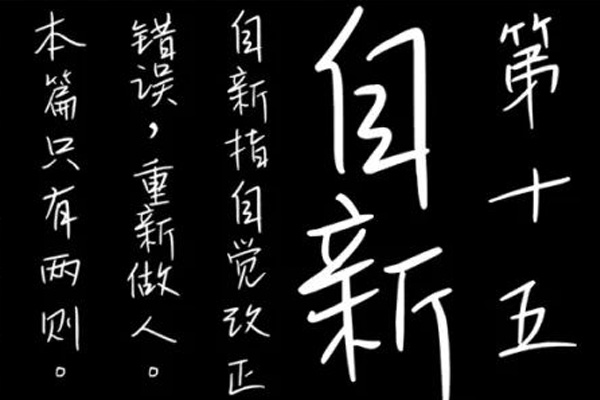 第十五
自新
自新指自觉改正
错误，重新做人。
本篇只有两则。